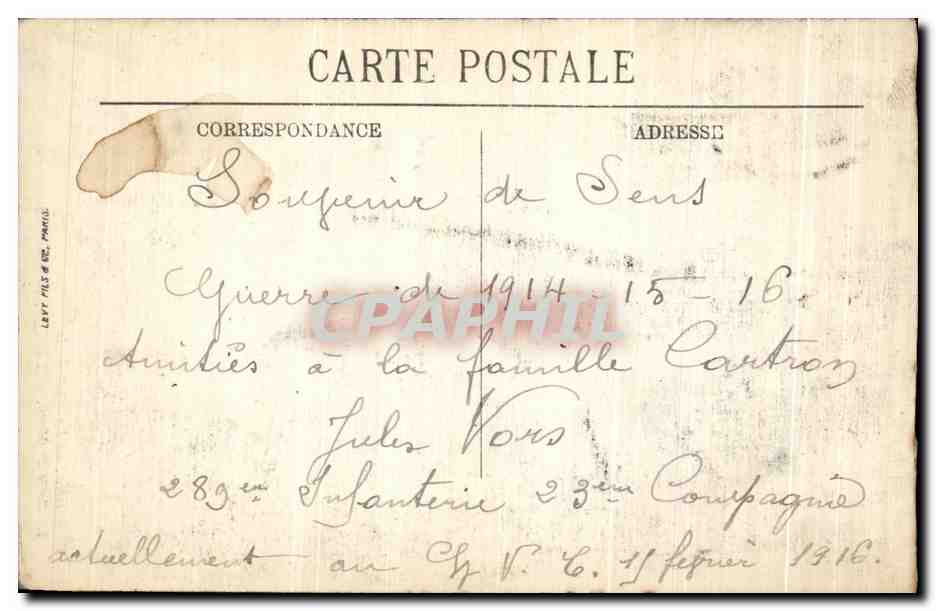 CARTE POSTALE
CORRESPONDANCE ADRESSE
Souvenir de Sens
Guerre de 1914 - 15 - 16.
CPAPHIL
Amitiés à la famille Cartron
Jules Vors
289em Infanterie 23eme Compagnie
actuellement au V. C. 15 février 1916.
LEVY FILS & Cie, PARIS.